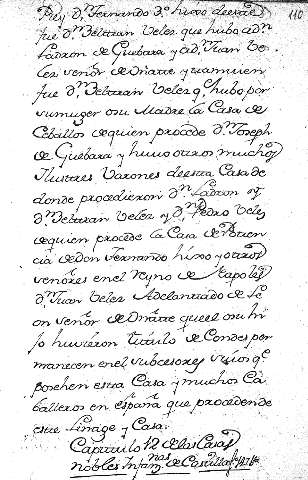 110
Rey Dn. Fernando 3º huvo de este
fue Dn. Beltran Velez que hubo a Dn.
Ladron de Guebara y a Dn. Juan Ve
lez señor de Oñatte
fue Dn. Beltran Velez q. hubo por
su muger o su Madre la Casa de
Ceballos de quien procede Dn. Joseph
de Guebara y huvo otros muchos
Ilustres Varones de esta Casa de
donde procedieron Dn. Ladron y
Dn. Beltran Velez y Dn. Pedro Velez
de quien procede la Casa de
cia de don Fernando hixo y otros
señores en el Reyno de Napoles
Dn. Juan Velez Adelantado de Le
on señor de Oñatte que el o su hi
jo huvieron titulo de Condes per
manecen en el subcesores suios q.
posehen esta Casa y muchos Ca
balleros en españa que proceden de
este Linage y Casa.
Capitulo 12 de las Casas
nobles de Castilla